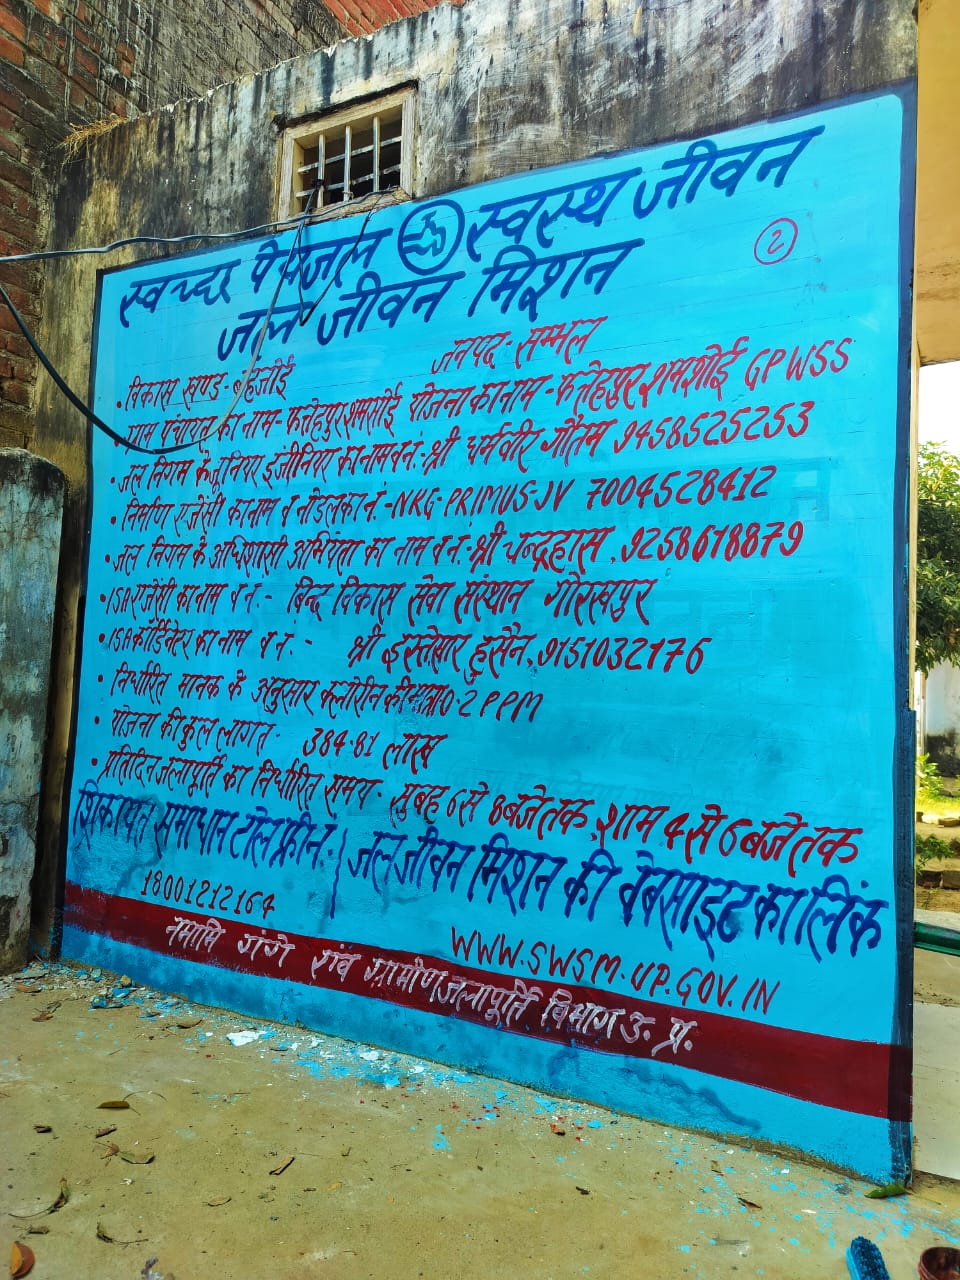 स्वच्छ पेयजल स्वस्थ जीवन
जल जीवन मिशन
2
विकास खण्ड- बहजोई जनपद- सम्भल
ग्राम पंचायत का नाम- फत्तेहपुर शमसोई योजना का नाम- फत्तेहपुर शमशोई GPWSS
• जल निगम के जूनियर इंजीनियर का नाम व नं.- श्री धर्मवीर गौतम 9458525253
• निर्माण एजेंसी का नाम व नोडल का नं.- NKG-PRIMUS-JV 7004528412
• जल निगम के अधिशासी अभियंता का नाम व नं.- श्री चन्द्रहास, 9258618879
• ISA एजेंसी का नाम व नं.- बिन्द विकास सेवा संस्थान गोरखपुर
• ISA कॉर्डिनेटर का नाम व नं.- श्री हुसैन, 9151032176
• निर्धारित मानक के अनुसार क्लोरीन की मात्रा 0.2 PPM
• योजना की कुल लागत- 384.81 लाख
• प्रतिदिन जलापूर्ति का निर्धारित समय- सुबह 6 से 8 बजे तक, शाम 4 से 6 बजे तक
शिकायत समाधान टोल फ्री नं.- जल जीवन मिशन की वेबसाइट का लिंक
18001212164 WWW.SWSM.UP.GOV.IN
नमामि गंगे एवं ग्रामीण जलापूर्ति विभाग उ. प्र.